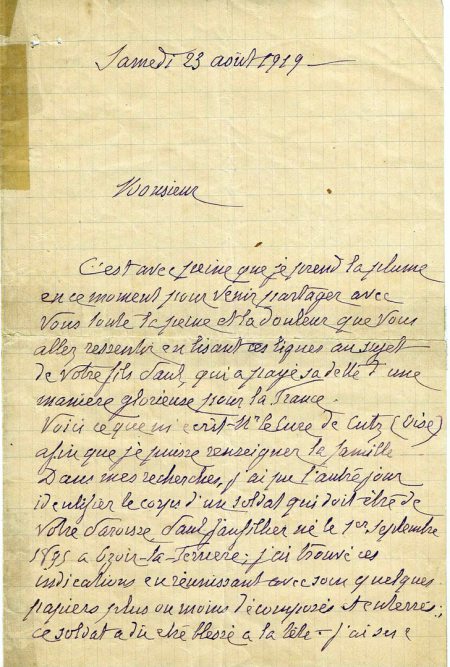 Samedi 23 août 1919 —
Monsieur
C'est avec peine que je prend la plume
en ce moment pour venir partager avec
vous toute la peine et la douleur que vous
allez ressentir en lisant ces lignes au sujet
de votre fils Paul, qui a payé sa dette d'une
manière glorieuse pour la France.
Voici ce que m'ecrit Mr le Cure de Cutz (Oise)
afin que je puisse renseigner la famille
Dans mes recherches, j'ai pu l'autre jour
identifier le corps d'un soldat qui doit être de
votre Paroisse, Paul Jaufillier né le 1er Septembre
1895 a Ozoir-la-Ferriere; j'ai trouvé ces
indications en reunissant avec soin quelques
papiers plus ou moins décomposés et enterrés;
ce soldat a dû etre blessé a la tête - j'ai